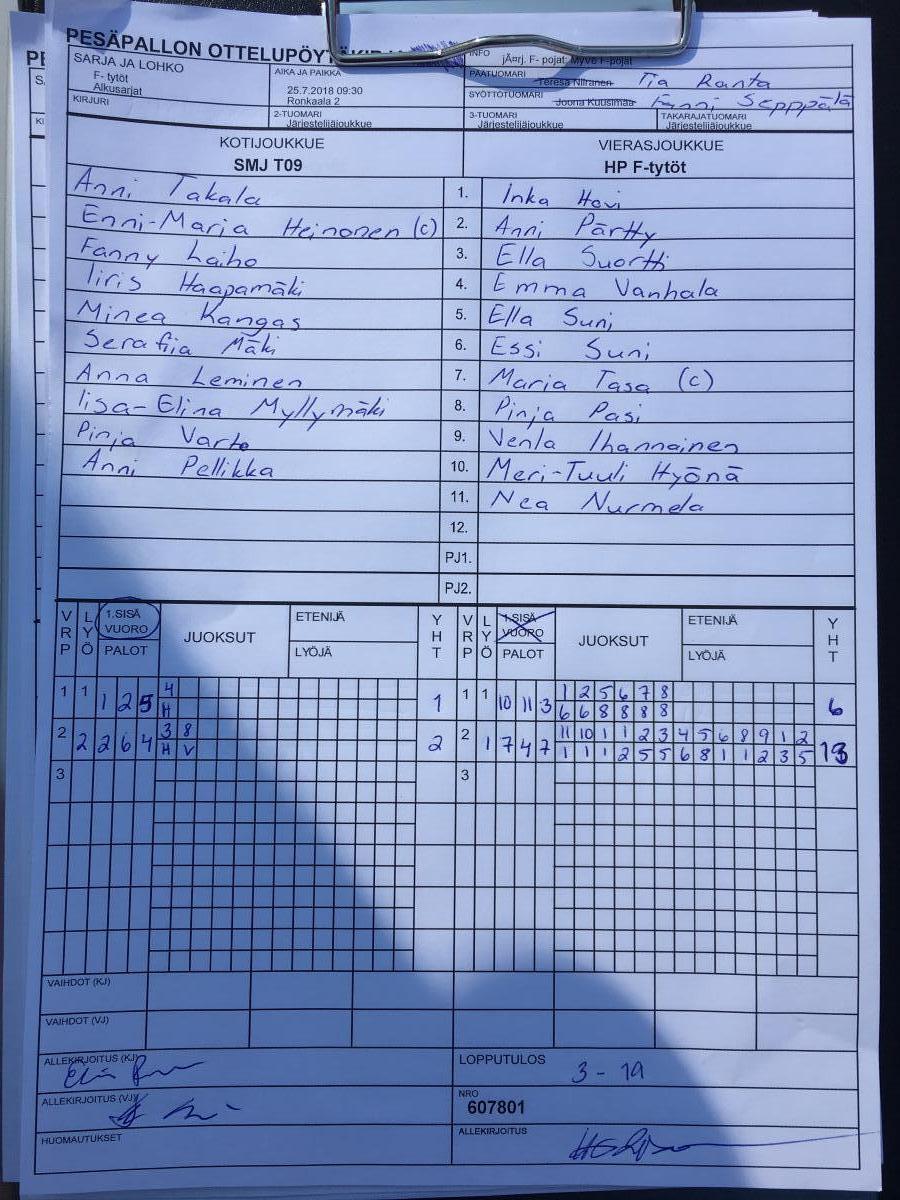 PESÄPALLON OTTELUPÖYTÄKIRJA
SARJA JA LOHKO
F- tytöt
Alkusarjat
KIRJURI
AIKA JA PAIKKA
25.7.2018 09:30
Ronkaala 2
2-TUOMARI
Järjestelijäjoukkue
INFO
jÄ¤rj. F- pojat: Myve F-pojat
PÄÄTUOMARI Teresa Niiranen Tia Ranta
SYÖTTÖTUOMARI Joona Kuusimaa Fanni Sepppälä
3-TUOMARI
Järjestelijäjoukkue
TAKARAJATUOMARI
Järjestelijäjoukkue
KOTIJOUKKUE
SMJ T09
VIERASJOUKKUE
HP F-tytöt
Anni Takala 1. Inka Hovi
Enni-Maria Heinonen (c) 2. Anni Pärtty
Fanny Laiho 3. Ella Suortti
Iiris Haapamäki 4. Emma Vanhala
Minea Kangas 5. Ella Suni
Serafiia Mäki 6. Essi Suni
Anna Leminen 7. Maria Tasa (c)
Iisa-Elina Myllymäki 8. Pinja Pasi
Pinja Varto 9. Venla Ihannainen
Anni Pellikka 10. Meri-Tuuli Hyönä
11. Nea Nurmela
12.
PJ1.
PJ2.
VRP LYÖ 1.SISÄ VUORO PALOT JUOKSUT ETENIJÄ LYÖJÄ YHT VRP LYÖ 1.SISÄ VUORO PALOT JUOKSUT ETENIJÄ LYÖJÄ YHT
1 1 1 2 5 4 1 1 1 10 11 3 1 2 5 6 7 8 6
H 6 6 8 8 8 8
2 2 2 6 4 3 8 2 2 1 7 4 7 11 10 1 1 2 3 4 5 6 8 9 1 2 13
H V 1 1 1 2 5 5 6 8 1 1 2 3 5
3 3
VAIHDOT (KJ)
VAIHDOT (VJ)
ALLEKIRJOITUS (KJ)
LOPPUTULOS 3 - 19
ALLEKIRJOITUS (VJ)
NRO
607801
HUOMAUTUKSET
ALLEKIRJOITUS